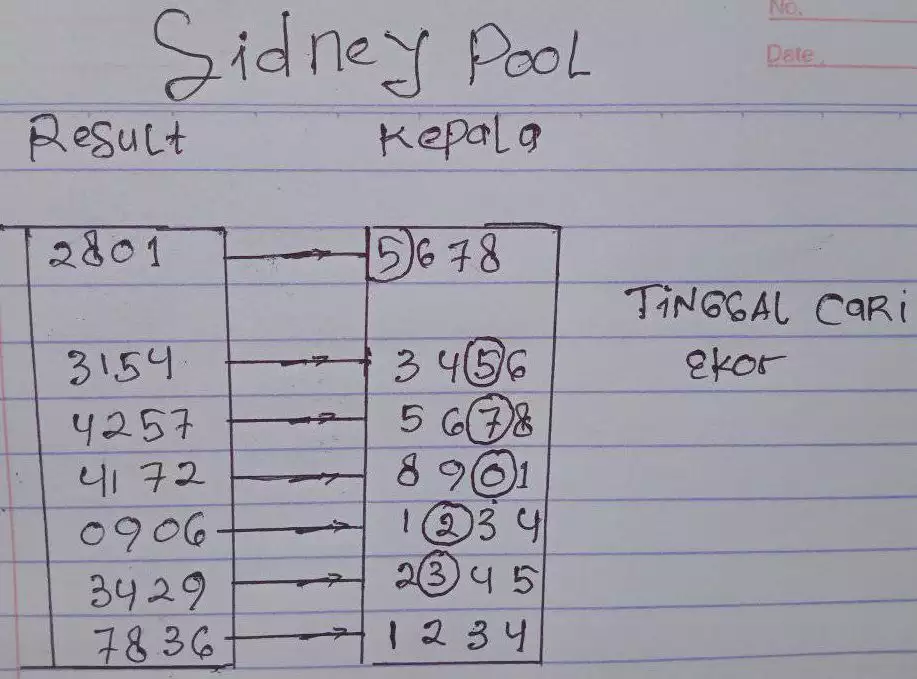 No.
Date
Sidney Pool
Result Kepala
2801 5678
TINGGAL CARI
3154 3456
Ekor
4257 5678
4172 8901
0906 1234
3429 2345
7836 1234